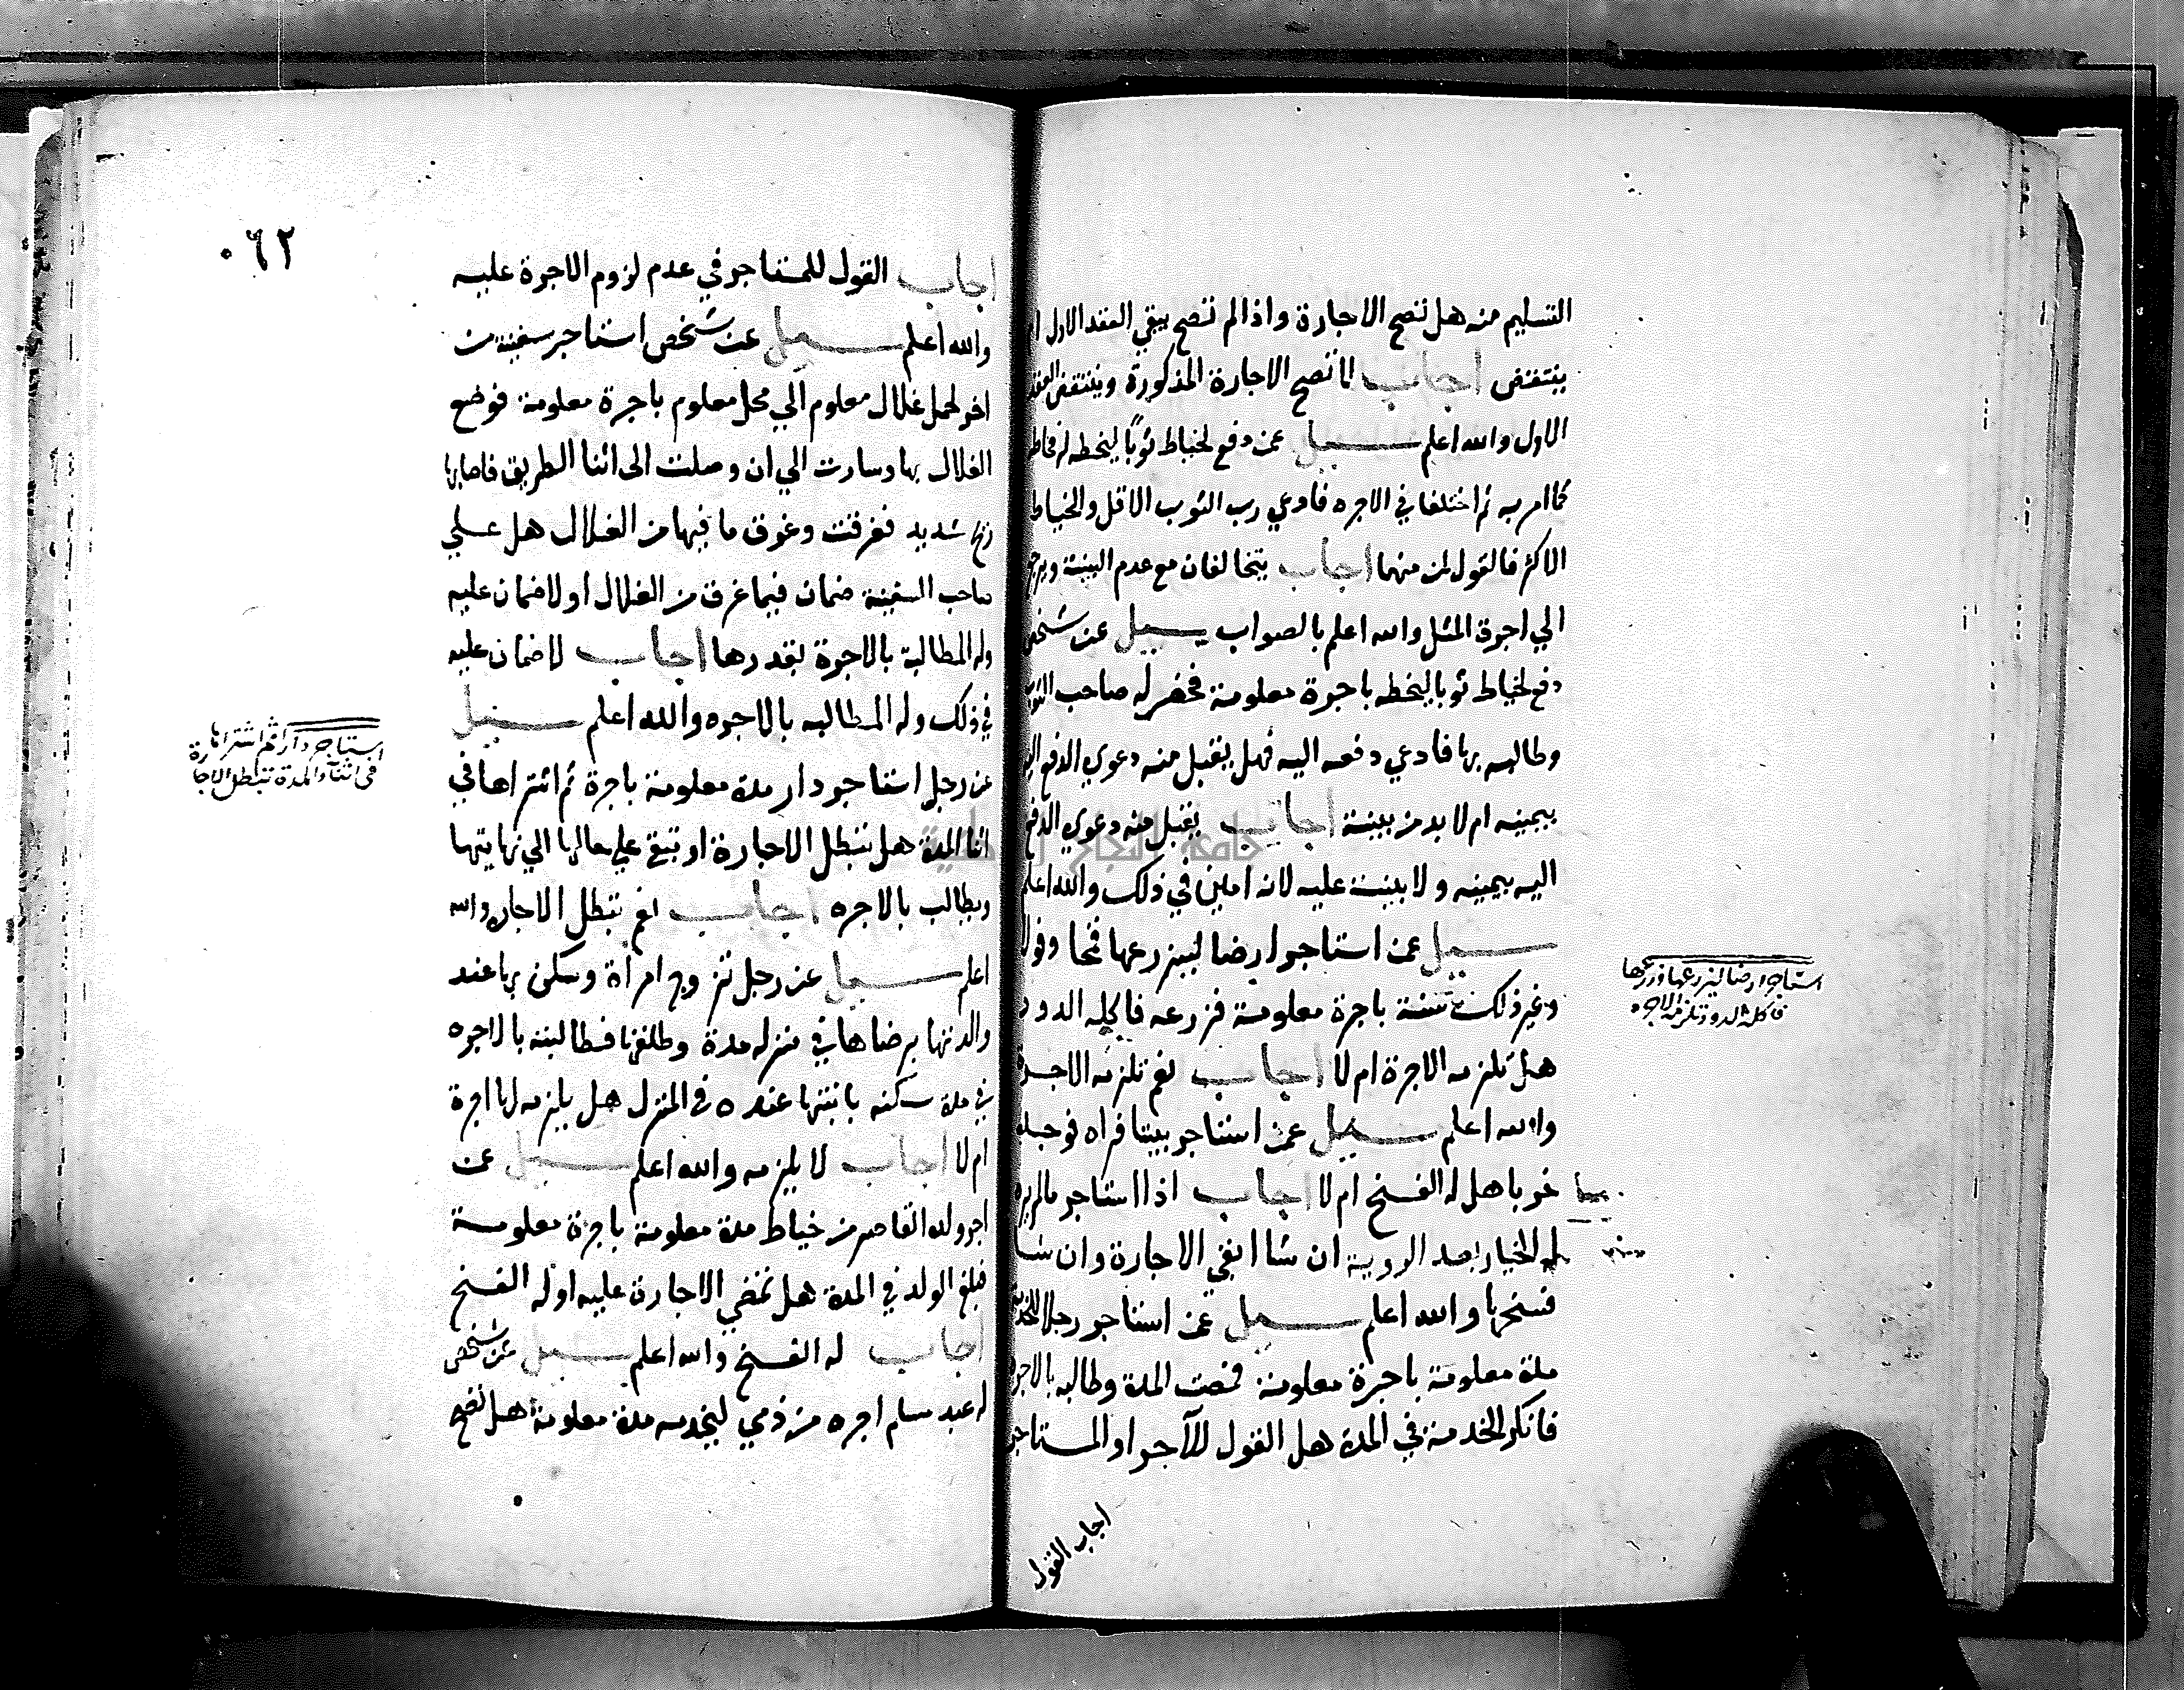 التسليم منه هل تصح الاجارة واذا لم تصح يبقي العقد الاول ام
ينتقض اجاب لا تصح الاجارة المذكورة وينتقض العقد
الاول والله اعلم سيل عمن دفع لخياط ثوبًا ليخطه له فخاطه
كما امر به ثم اختلفا في الاجره فادعي رب الثوب الاقل والخياط
الاكثر فالقول لمن منهما اجاب يتحالفان مع عدم البينة ويرجع
الي اجرة المثل والله اعلم بالصواب سيل عن شخص
دفع لخياط ثوبا ليخطه باجرة معلومة فحضر له صاحب الثوب
وطالبه بها فادعي دفعه اليه فهل يقبل منه دعوي الدفع اليه
بيمينه ام لا بد من بينة اجاب يقبل منه دعوي الدفع
اليه بيمينه ولا بينة عليه لانه امين في ذلك والله اعلم
سيل عمن استاجر ارضا ليزرعها قمحا وفولا
وغير ذلك سنة باجرة معلومة فزرعه فاكله الدود
هل تلزمه الاجرة ام لا اجاب نعم تلزمه الاجرة
والله اعلم سيل عمن استاجر بيتا فراه فوجده
خربا هل له الفسخ ام لا اجاب اذا استاجر مالم يره
له الخيار بعد الروية ان شا ابقي الاجارة وان شا
فسخها والله اعلم سيل عمن استاجر رجلا للخدمة
مدة معلومة باجرة معلومة فمضت المدة وطالبه بالاجرة
فانكر الخدمة في المدة هل القول للآجر او المستاجر
اجاب القول
استاجر ارضا ليزرعها فزرعها
فاكله الدود تلزمه الاجره
٠٦٢
اجاب القول للمستاجر في عدم لزوم الاجرة عليه
والله اعلم سيل عن شخص استاجر سفينة من
اخر لحمل غلال معلوم الي محل معلوم باجرة معلومة فوضع
الغلال بها وسارت الي ان وصلت الى اثنا الطريق فاصابها
ريح شديد فغرقت وغرق ما فيها من الغلال هل علي
صاحب السفينة ضمان فيما غرق من الغلال او لا ضمان عليه
وله المطالبة بالاجرة بقدرها اجاب لا ضمان عليه
في ذلك وله المطالبه بالاجره والله اعلم سيل
عن رجل استاجر دار مدة معلومة باجرة ثم اشتراها في
اثنا المدة هل تبطل الاجارة او تبقي علي حالها الي نهايتها
ويطالب بالاجره اجاب نعم تبطل الاجاره والله
اعلم سيل عن رجل تزوج امراة وسكن بها عند
والدتها برضاها في منزله مدة وطلقها فطالبته بالاجره
في مدة سكنه بابنتها عنده في المنزل هل يلزمه لها اجرة
ام لا اجاب لا يلزمه والله اعلم سيل عمن
اجر ولده القاصر من خياط مدة معلومة باجرة معلومة
فبلغ الولد في المدة هل تمضي الاجارة عليه او له الفسخ
اجاب له الفسخ والله اعلم سيل عن شخص
له عبد مسلم اجره من ذمي ليخدمه مدة معلومة هل تصح
استاجر دار اثم اشتراها
في اثناء المدة تبطل الاجارة